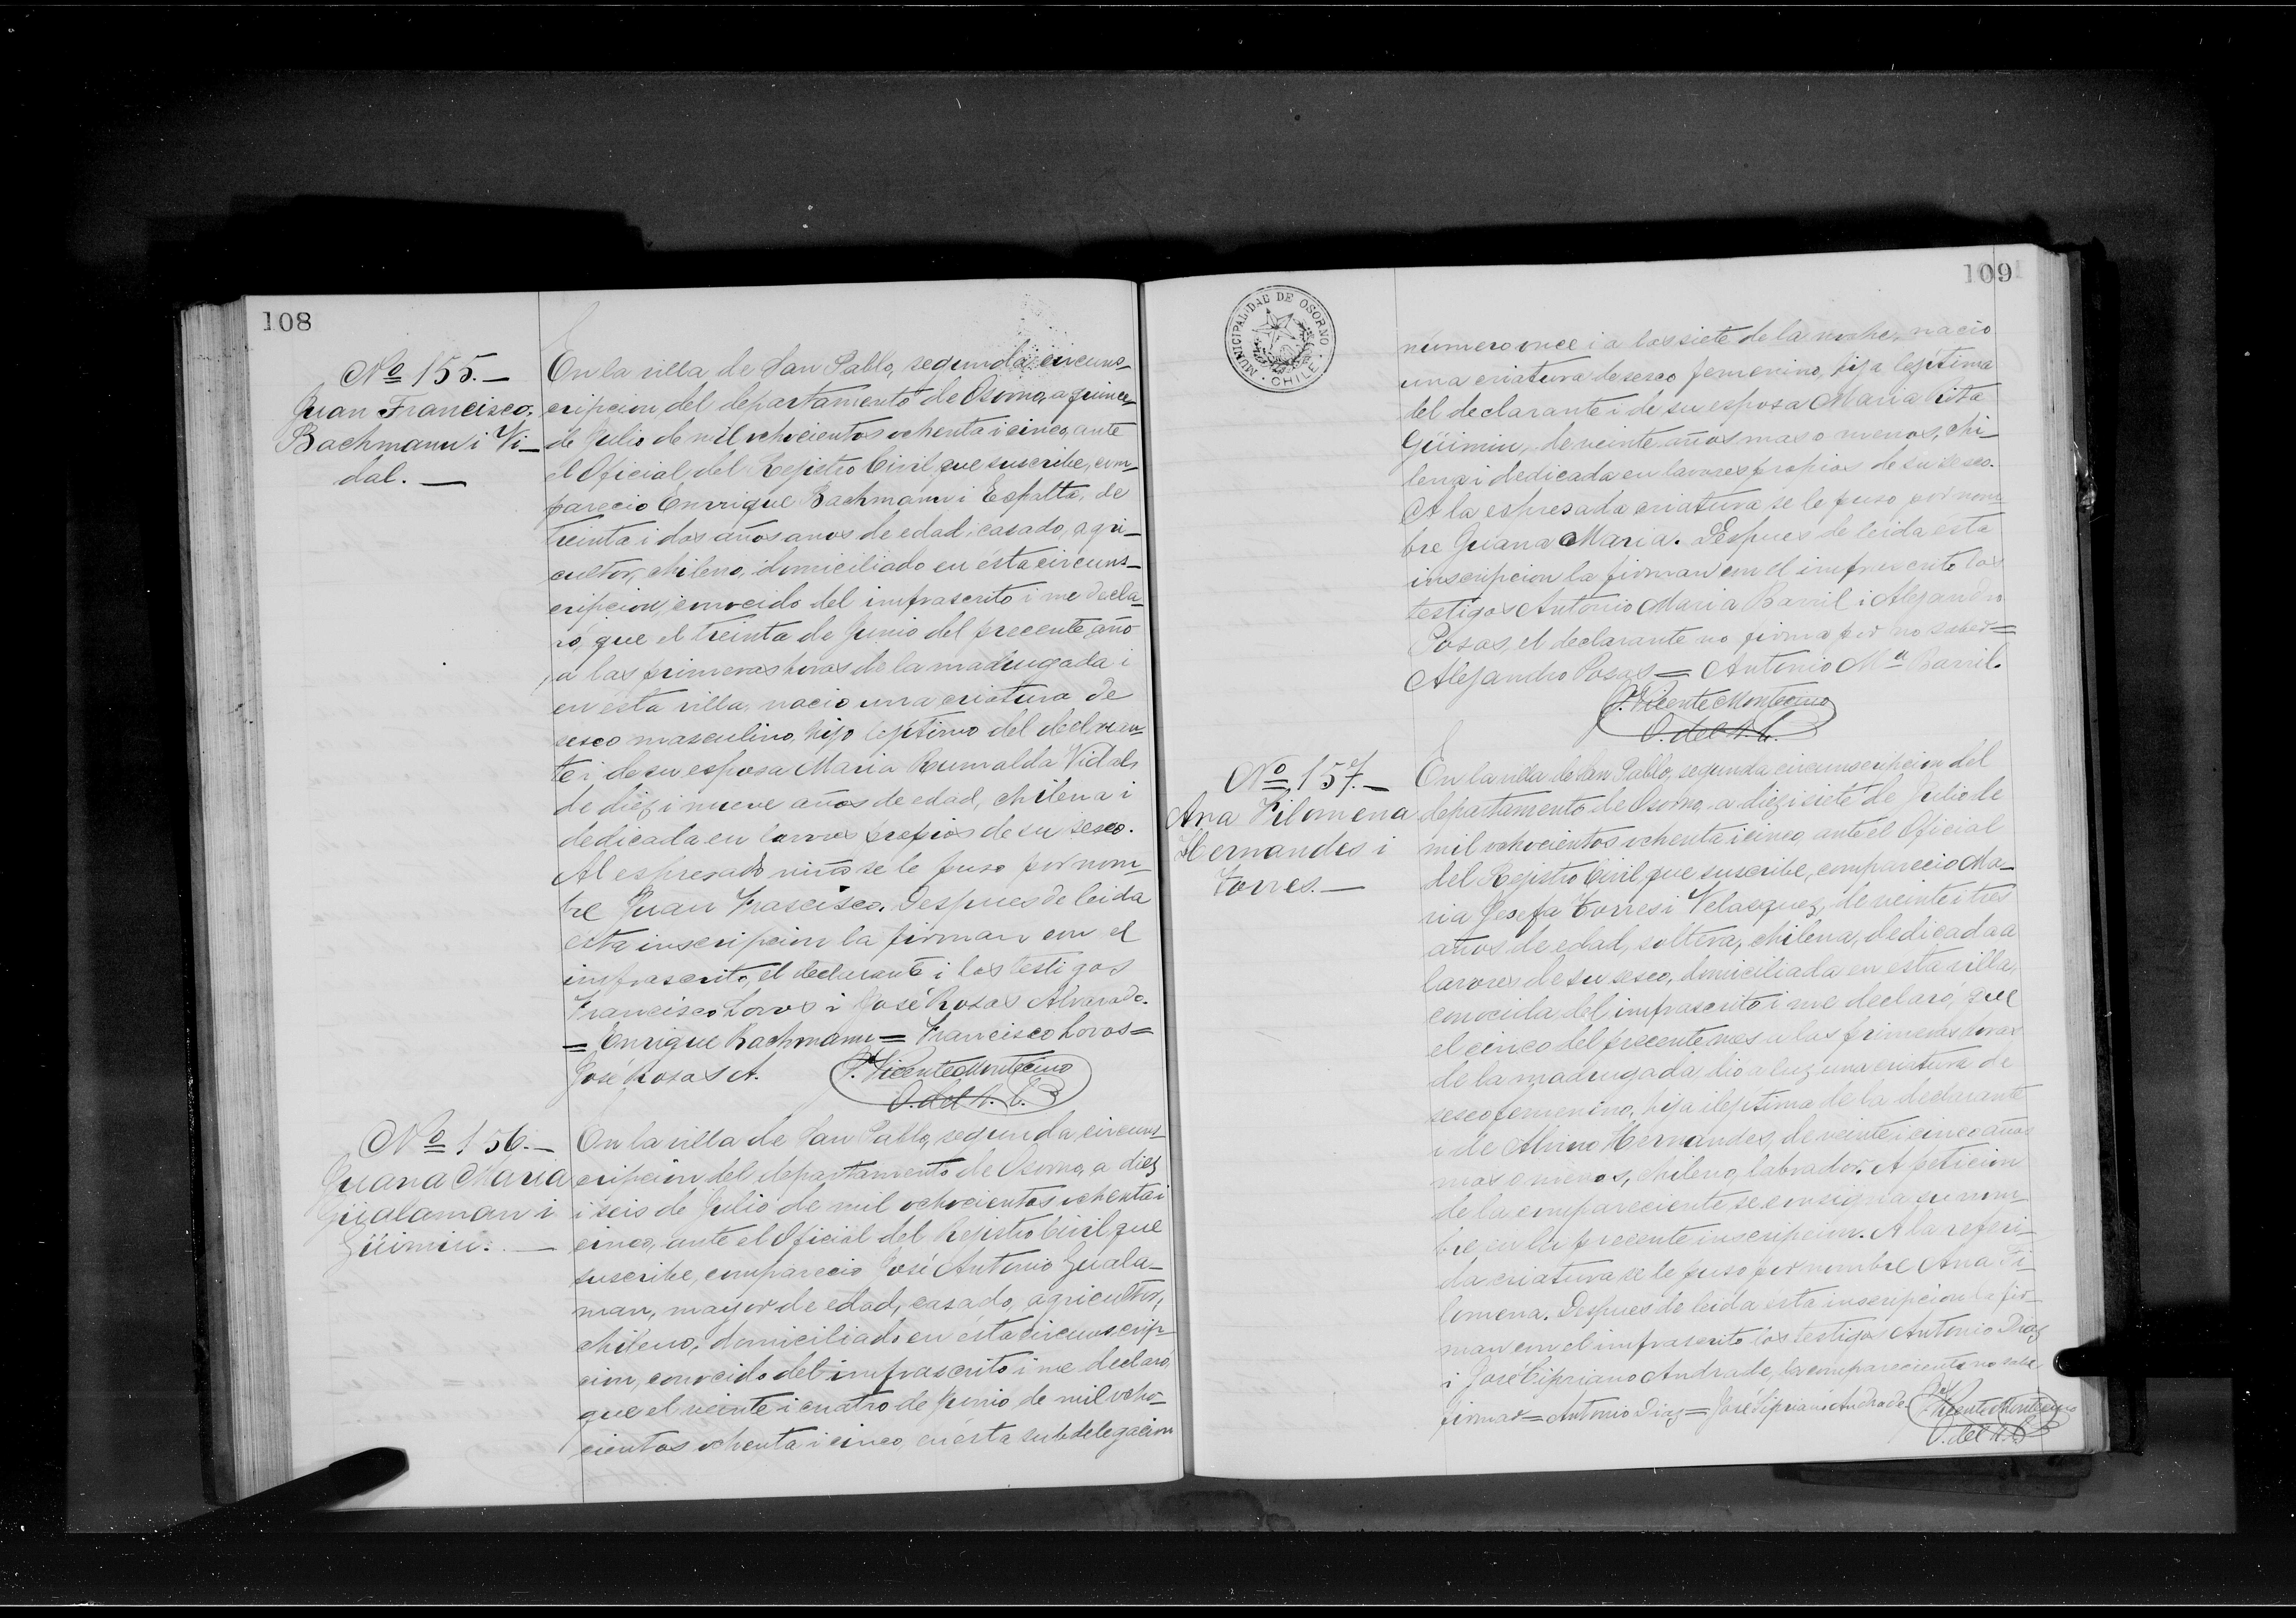 108
Nº 155.—
Juan Francisco
Bachmann i Vi—
dal.—
En la villa de San Pablo, segunda circuns—
cripcion, del departamento de Osorno, a quince
de Julio de mil ochocientos ochenta i cinco, ante
el Oficial del Rejistro Civil que suscribe, com—
parecio Enrrique Bachmann i Espalta, de
treinta i dos años anos de edad, casado, agri—
cultor, chileno, domiciliado en ésta circuns—
cripcion, conocido del imfrascrito i me decla—
ró, que el treinta de Junio del precente año
a las primeras horas de la madrugada i
en ésta villa, nacio una criatura de
sesco masculino, hijo lejítimo del declaran—
te i de su esposa Maria Rumalda Vidal,
de diez i nueve años de edad, chilena i
dedicada en lavores propios de su sesco.
Al espresado niño se le puso por nom—
bre Juan Frascisco. Despues de leida
esta inscripcion la firman con el
imfrascrito, el declarante i los testigos
Francisco Lovos i José Rosas Alvarado.
= Enrique Bachmann = Francisco Lovos =
José Rosas A. P. Vicente Montecino
O. del R. C.
Nº 156.—
Juana Maria
Gualaman i
Güimin.—
En la villa de San Pablo, segunda, circuns—
cripcion del departamento de Osorno, a diez
i seis de Julio de mil ochocientos ochenta i
cinco, ante el Oficial del Rejistro Civil que
suscribe, comparecio José Antonio Guala—
man, mayor de edad, casado, agricultor,
chileno, domiciliado en ésta circunscrip—
cion, conocido del imfrascrito i me declaró,
que el veinte i cuatro de Junio de mil ocho—
cientos ochenta i cinco, en ésta subdelegacion
109
MUNICIPALIDAD DE OSORNO
CHILE
número once i a las siete de la noche, nacio
una criatura de sesco femenino, hija lejítima
del declarante i de su esposa Maria Rita
Güimin, de veinte años mas o menos, chi—
lena i dedicada en lavores propios de su sesco.
A la espresada criatura se le puso por nom—
bre Juana Maria. Despues de leida ésta
inscripcion la firman con el imfrascrito los
testigos Antonio Maria Barril i Alejandro
Posas, el declarante no firma por no saber =
Alejandro Posas = Antonio Mª Barril.
P. Vicente Montecino
O. del R. C.
Nº 157.—
Ana Filomena
Hernandes i
Torres.—
En la villa de San Pablo, segunda circunscripcion del
departamento de Osorno, a diez i siete de Julio de
mil ochocientos ochenta i cinco, ante el Oficial
del Rejistro Civil que suscribe, comparecio Ma—
ria Josefa Torres i Velasquez, de veinte i tres
años de edad, soltera, chilena, dedicada a
lavores de su sesco, domiciliada en esta villa,
conocida del imfrascrito i me declaró, que
el cinco del precente mes a las primeras horas
de la madrugada, dio a luz una criatura de
sesco femenino, hija ilejitima de la declarante
i de Alvino Hernandez, de veinte i cinco años
mas o menos, chileno, labrador. A peticion
de la compareciente, se consigna su nom—
bre en la precente inscripcion. A la referi—
da criatura se le puso por nombre Ana Fi—
lomena. Despues de leida esta inscripcion la fir—
man con el imfrascrito los testigos Antonio Diaz
i José Cipriano Andrade, la compareciente no sabe
firmar = Antonio Diaz = José Sipriano Andrade P. Vicente Montecino
O. del R. C.